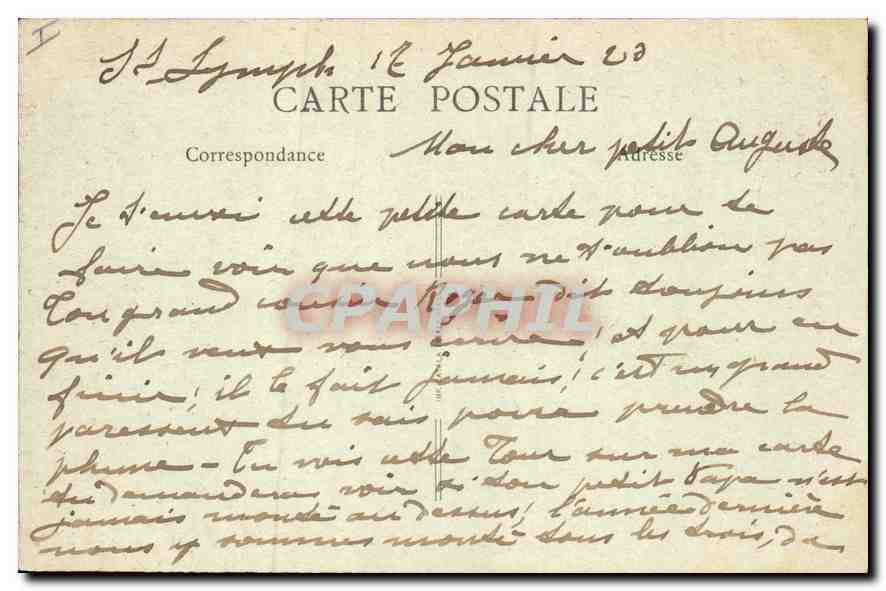 I
St Symph 17 Janvier 23
CARTE POSTALE
Correspondance
Adresse
Mon cher petit Auguste
Je t'envoi cette petite carte pour te
faire voir que nous ne t'oublion pas
Ton grand cousin Roger dit toujours
qu'ils veux vous écrire, et pour en
finir, il le fait jamais, c'est un grand
paresseux tu sais pour prendre la
plume - Tu vois cette Tour sur ma carte
tu demanderas voir si ton petit Papa n'est
jamais monté au dessus, l'année dernière
nous y sommes monté tous les trois, da
CPAPHIL